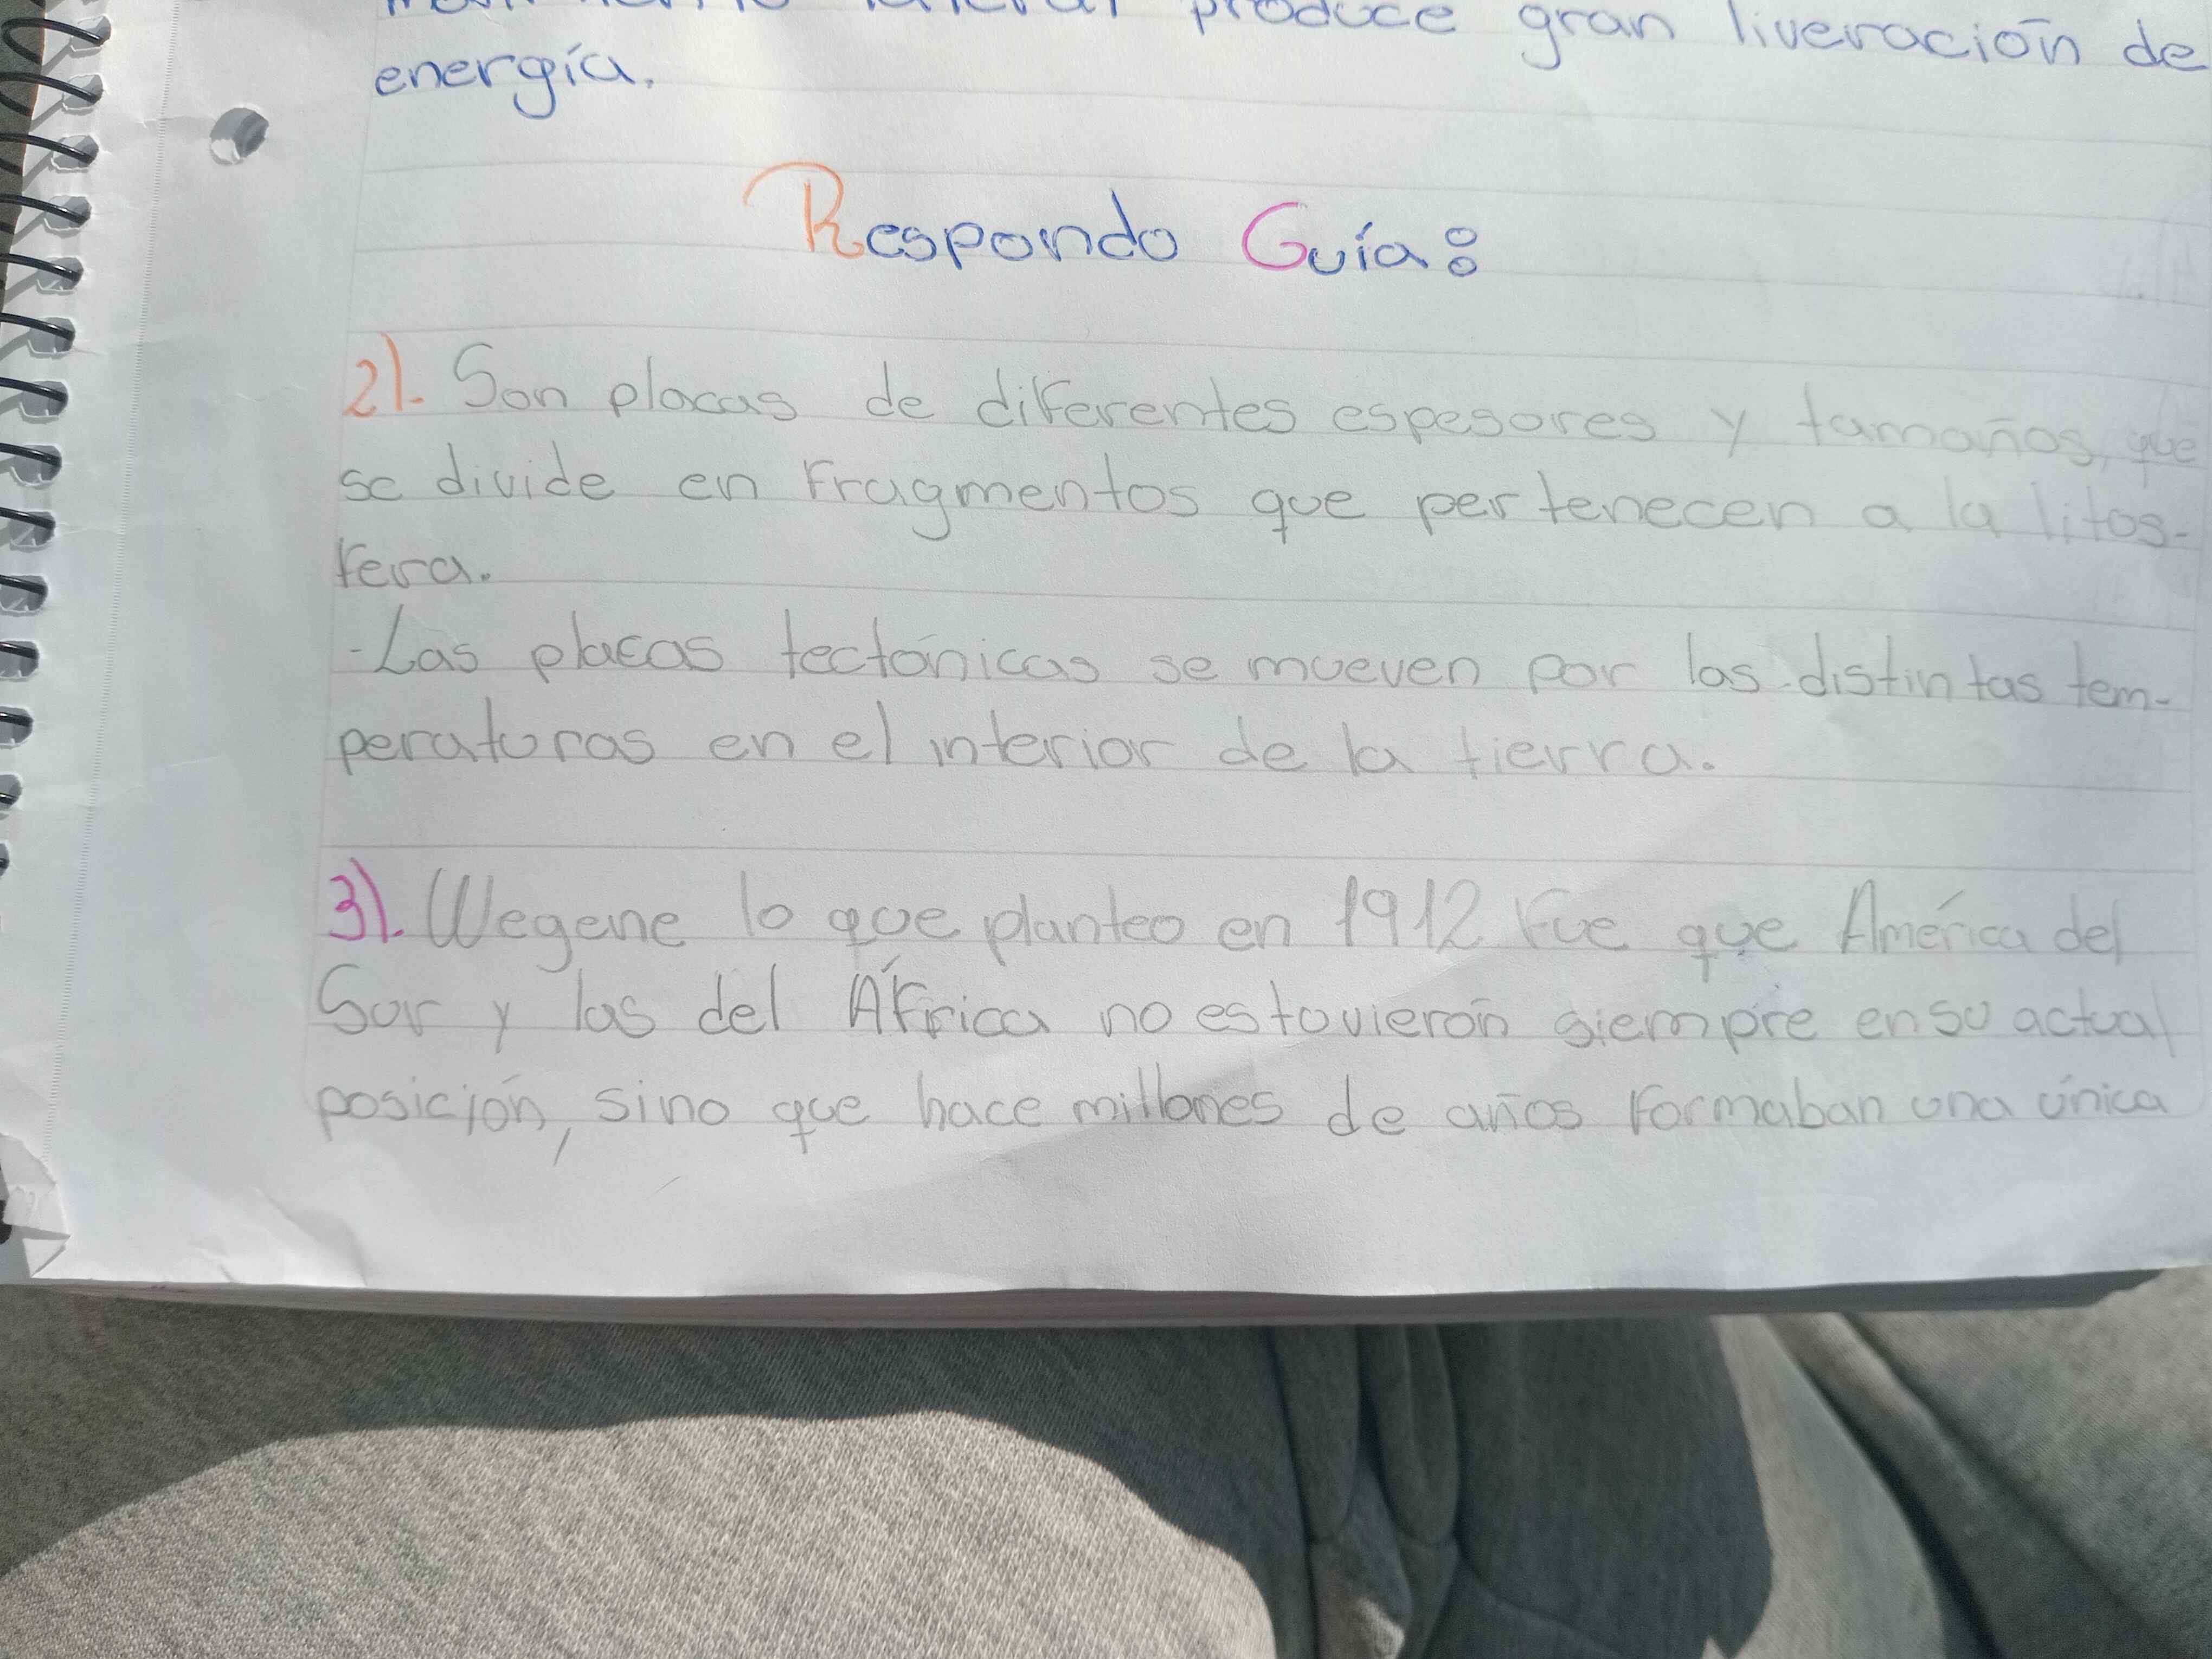 produce gran liveración de
energía.
Respondo Guía:
2). Son placas de diferentes espesores y tamaños, que
se divide en Fragmentos que pertenecen a la litos-
fera.
-Las placas tectónicas se mueven por las distintas tem-
peraturas en el interior de la tierra.
3). Wegene lo que planteo en 1912 Fue que América del
Sur y las del África no estuvierón siempre en su actual
posición, sino que hace millones de años Formaban una única